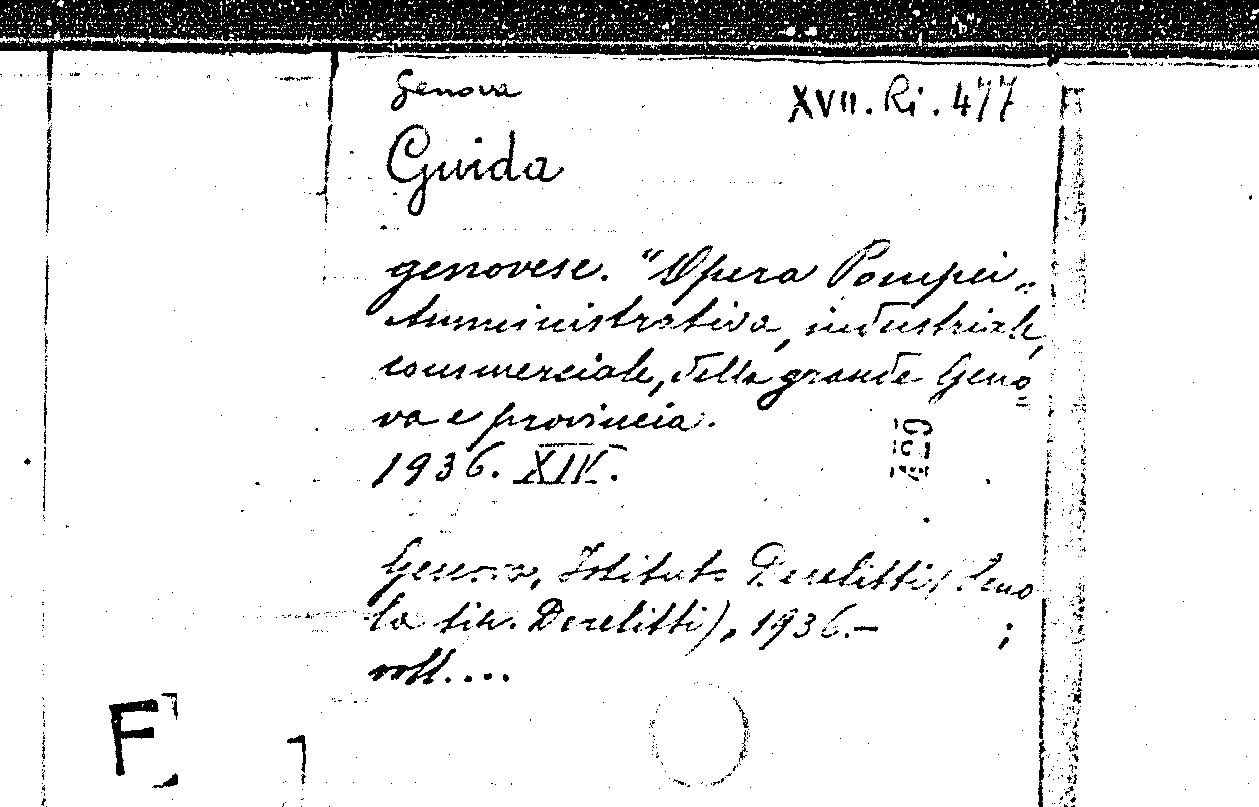 Genova
XVII. Ri. 477
Guida
genovese. "Opera Pompei"
Amministrativa, industriale,
commerciale, della grande Geno
va e provincia.
1936. XIV.
429
Genova, Istituto Derelitti (Scuo
la tip. Derelitti), 1936.— ;
voll....
F